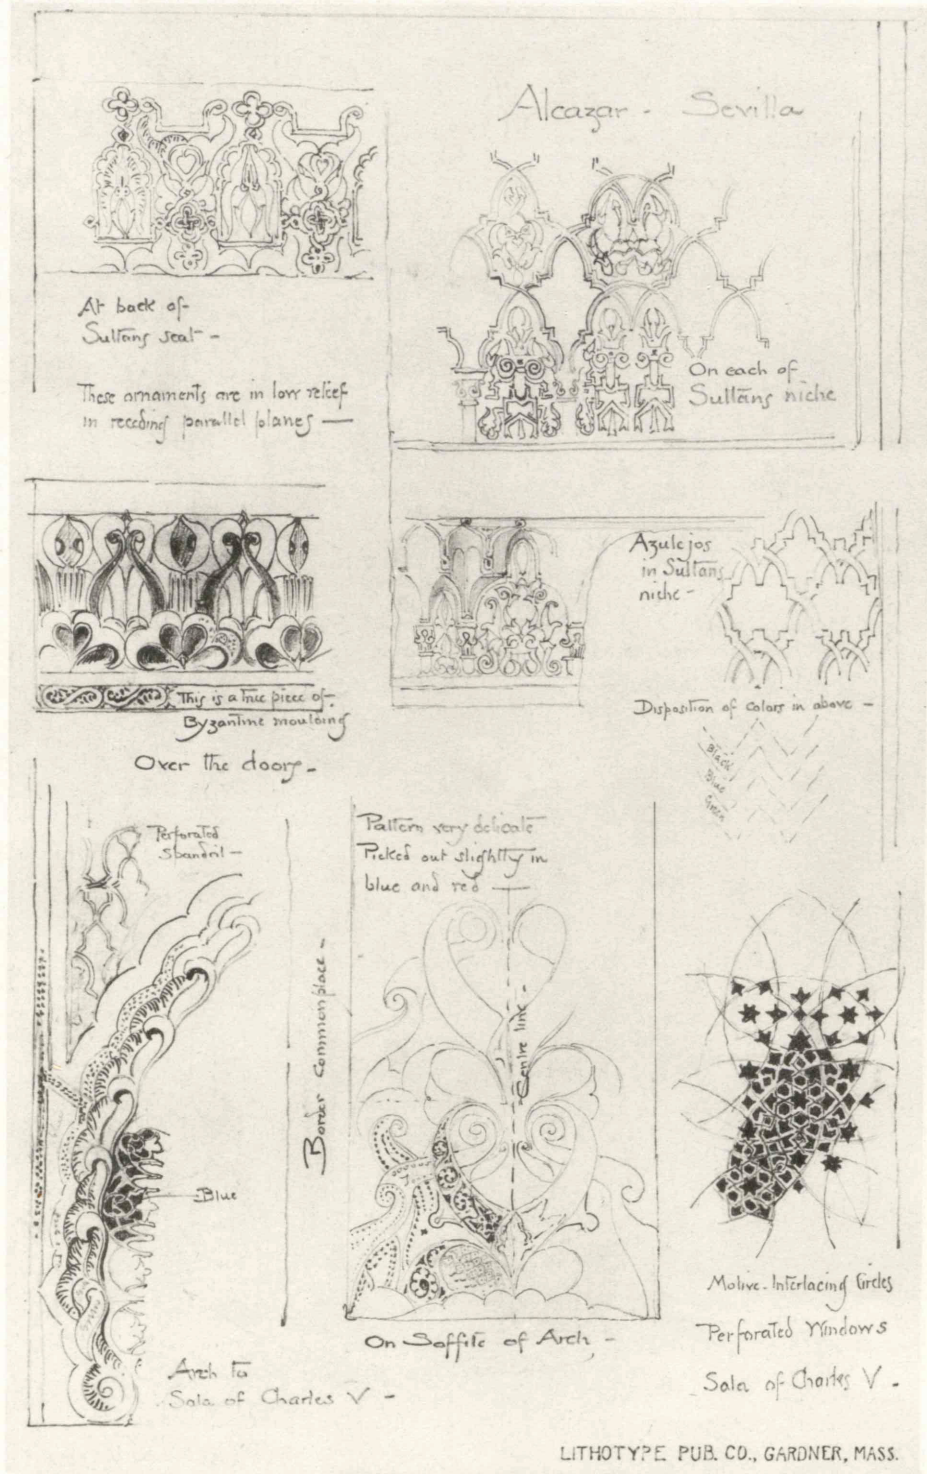 Alcazar - Sevilla
At back of
Sultans seat -
These ornaments are in low relief
in receding parallel planes —
On each of
Sultans niche
Azulejos
in Sultans
niche -
Disposition of colors in above -
Black
Blue
Green
This is a true piece of
Byzantine moulding
Over the doors -
Perforated
Spandril -
Blue
Arch to
Sala of Charles V -
Border commonplace -
Pattern very delicate
Picked out slightly in
blue and red —
Centre line -
On Soffite of Arch -
Motive - Interlacing Circles
Perforated Windows
Sala of Charles V -
LITHOTYPE PUB. CO., GARDNER, MASS.